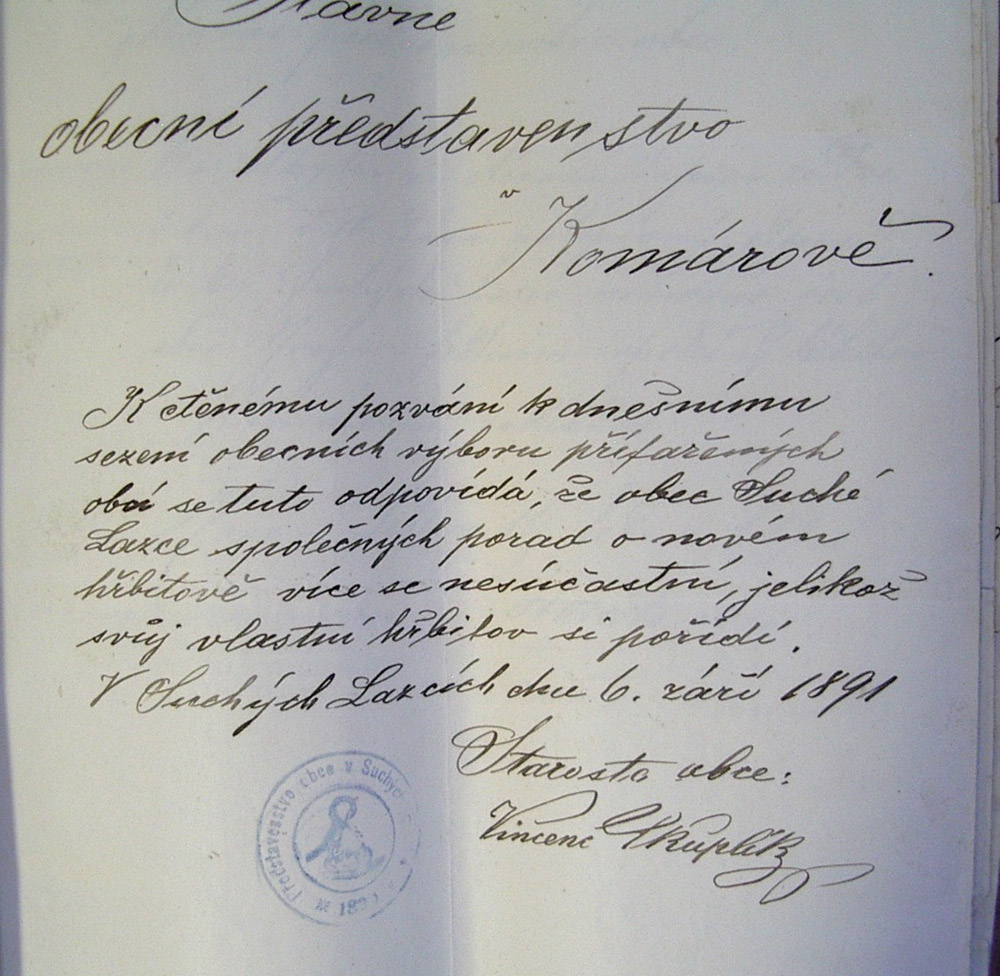 Slavné
obecní představenstvo
v Komárově.
K ctěnému pozvání k dnešnímu
sezení obecních výboru přífařéných
obcí se tuto odpovídá, že obec Suché
Lazce společných porad o novém
hřbitově více se nesúčastní, jelikož
svůj vlastní hřbitov si pořídí.
V Suchých Lazcích dne 6. září 1891
Starosta obce:
Vincenc
Představenstvo obce v Suchých